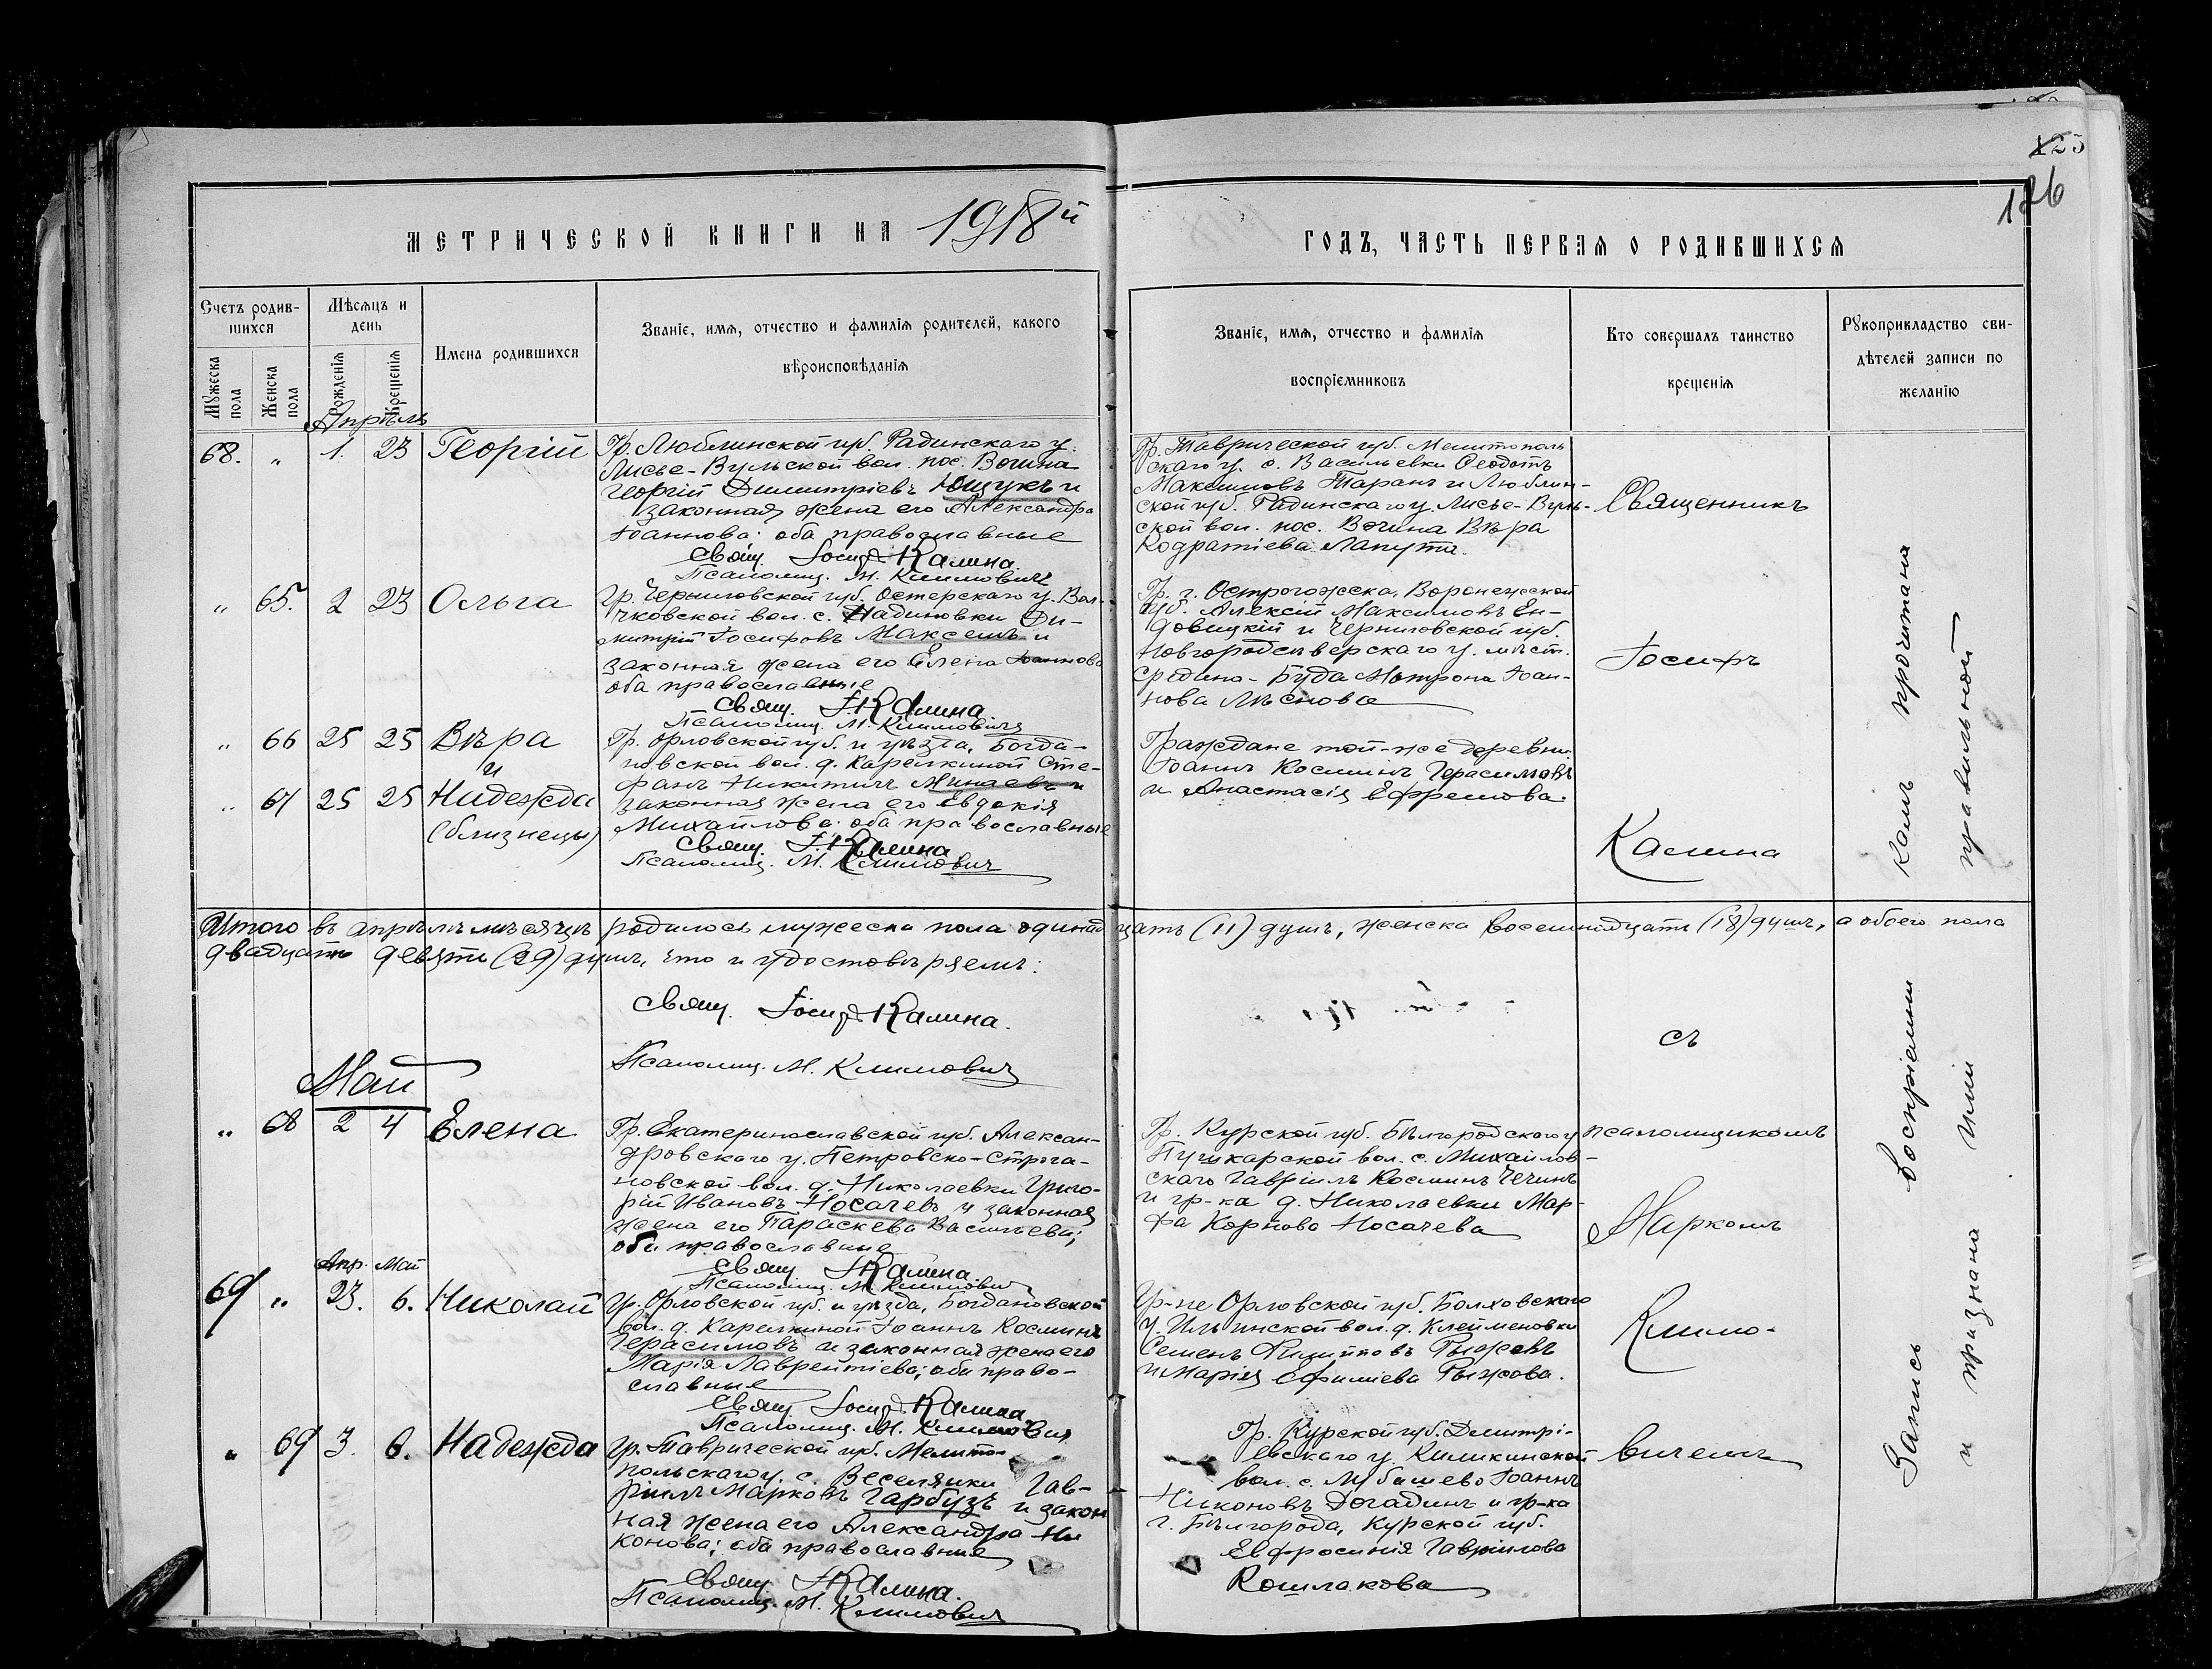 125
126
МЕТРИЧЕСКОЙ КНИГИ НА 1918й
ГОДЪ, ЧАСТЬ ПЕРВАЯ О РОДИВШИХСЯ
Счетъ родив-
шихся
Мужеска пола
Женска пола
Мѣсяцъ и
день
Рожденія
Крещенія
Имена родившихся
Званіе, имя, отчество и фамилія родителей, какого
вѣроисповѣданія
Званіе, имя, отчество и фамилія
воспріемниковъ
Кто совершалъ таинство
крещенія
Рукоприкладство сви-
дѣтелей записи по
желанію
Апрѣль
68. „ 1. 23 Георгій
Гр. Люблинской губ. Радинскаго у.
Лисье-Вульской вол. пос. Вогина
Георгій Димитріевъ Ющукъ и
законная жена его Александра
Іоаннова: оба православные
Свящ. Іосиф Калина.
Псаломщ. М. Климовичъ
Гр. Таврической губ. Мелитополь
скаго у. с. Васильевки Ѳеодотъ
Максимовъ Таранъ и Люблин-
ской губ. Радинскаго у. Лисье-Вуль-
ской вол. пос. Вогина Вѣра
Кодратіева Лапута.
„ 65. 2 23 Ольга
Гр. Черниговской губ. Остерскаго у.
вол. с. Надиновки Ди-
митрій Іосифовъ Максемъ и
законная жена его Елена Іоаннова
оба православные
Свящ. І. Калина
Псаломщ. М. Климовичъ
Гр. г. Острогожска, Воронежской
губ. Алексій Максимовъ Ен-
довицкій и Черниговской губ.
Новгородсѣверскаго у. мѣст.
Средина-Буда Матрона Іоан-
нова Лѣснова
„ 66 25 25 Вѣра
и
„ 67 25 25 Надежда
(близнецы)
Гр. Орловской губ. и уѣзда, Богда-
новской вол. д. Карелкиной Сте-
фанъ Никитичъ Минаевъ и
законная жена его Евдокія
Михайлова: оба православные
Свящ. І. Калина
Псаломщ. М. Климовичъ
Граждане той-же деревни
Іоаннъ Косминъ Герасимовъ
и Анастасія Ефремова.
Итого въ апрѣлѣ мѣсяцѣ родилось мужеска пола одинадцать (11) душъ, женска восемнадцать (18) душъ, а обоего пола
двадцать девять (29) душъ, что и удостовѣряемъ:
Свящ. Іосиф Калина.
Псаломщ. М. Климовичъ
Май
„ 68 2 4 Елена
Гр. Екатеринославской губ. Алексан-
дровскаго у. Петровско-Строга-
новской вол. д. Николаевки Григо-
рій Ивановъ Носачевъ и законная
жена его Параскева Васильева;
оба православные
Свящ. І. Калина
Псаломщ. М. Климовичъ
Гр. Курской губ. Бѣлгородскаго у
Пушкарской вол. с. Михайлов-
скаго Гавріилъ Косминъ Чечинъ
и гр-ка д. Николаевки Мар-
фа Карпова Носачева
Апр. Май
69 „ 23. 6. Николай
Гр. Орловской губ. и уѣзда, Богдановской
вол. д. Карелкиной Іоаннъ Косминъ
Герасимовъ и законная жена его
Марія Лаврентіева; оба право-
славные
Свящ. Іосиф Калина
Псаломщ. М. Климовичъ
Гр-не Орловской губ. Болховскаго
у. Ильинской вол. д. Клейменовки
Семенъ Филипповъ Рыжовъ
и Марія Ефиміева Рыжова.
„ 69 3. 6. Надежда
Гр. Таврической губ. Мелито-
польскаго у. с. Веселянки Гав-
риилъ Марковъ Гарбузъ и закон
ная жена его Александра Ни
конова; оба православные
Свящ. І. Калина.
Псаломщ. М. Климовичъ
Гр. Курской губ. Димитрі-
евскаго у. Киликинской
вол. с. Іоаннъ
Никоновъ Догадинъ и гр-ка
г. Бѣлгорода, Курской губ.
Евфросинія Гавріилова
Кошлакова
Священникъ
Іосифъ
Калина
съ
псаломщикомъ
Маркомъ
Климо-
вичемъ
Запись воспріемникамъ прочитана
и признана ими правильной